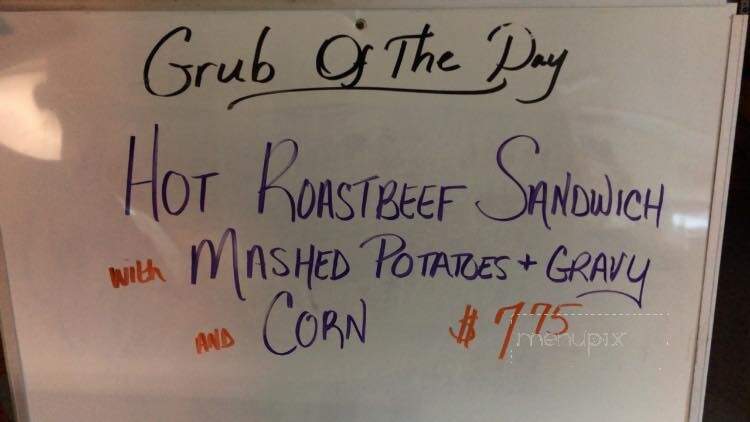 Grub Of The Day
HOT ROASTBEEF SANDWICH
with MASHED POTATOES + GRAVY
AND CORN $7.75
menupix